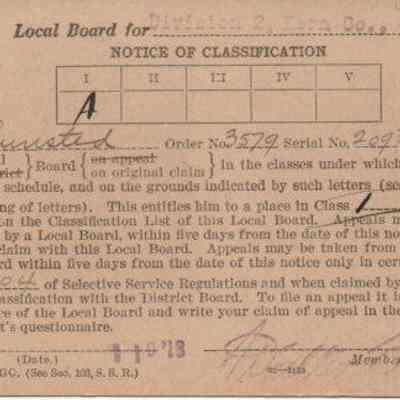 Local Board for Division 2, Kern Co.,
NOTICE OF CLASSIFICATION
I II III IV V
A
Order No. 3579 Serial No. 209
Board { on appeal
on original claim } in the classes under which
schedule, and on the grounds indicated by such letters (see
ng of letters). This entitles him to a place in Class 1
on the Classification List of this Local Board. Appeals m
by a Local Board, within five days from the date of this no
claim with this Local Board. Appeals may be taken from
rd within five days from the date of this notice only in cer
04 of Selective Service Regulations and when claimed by
assification with the District Board. To file an appeal it is
ce of the Local Board and write your claim of appeal in the
t's questionnaire.
(Date.) Membe
GO. (See Sec. 103, S. S. R.)